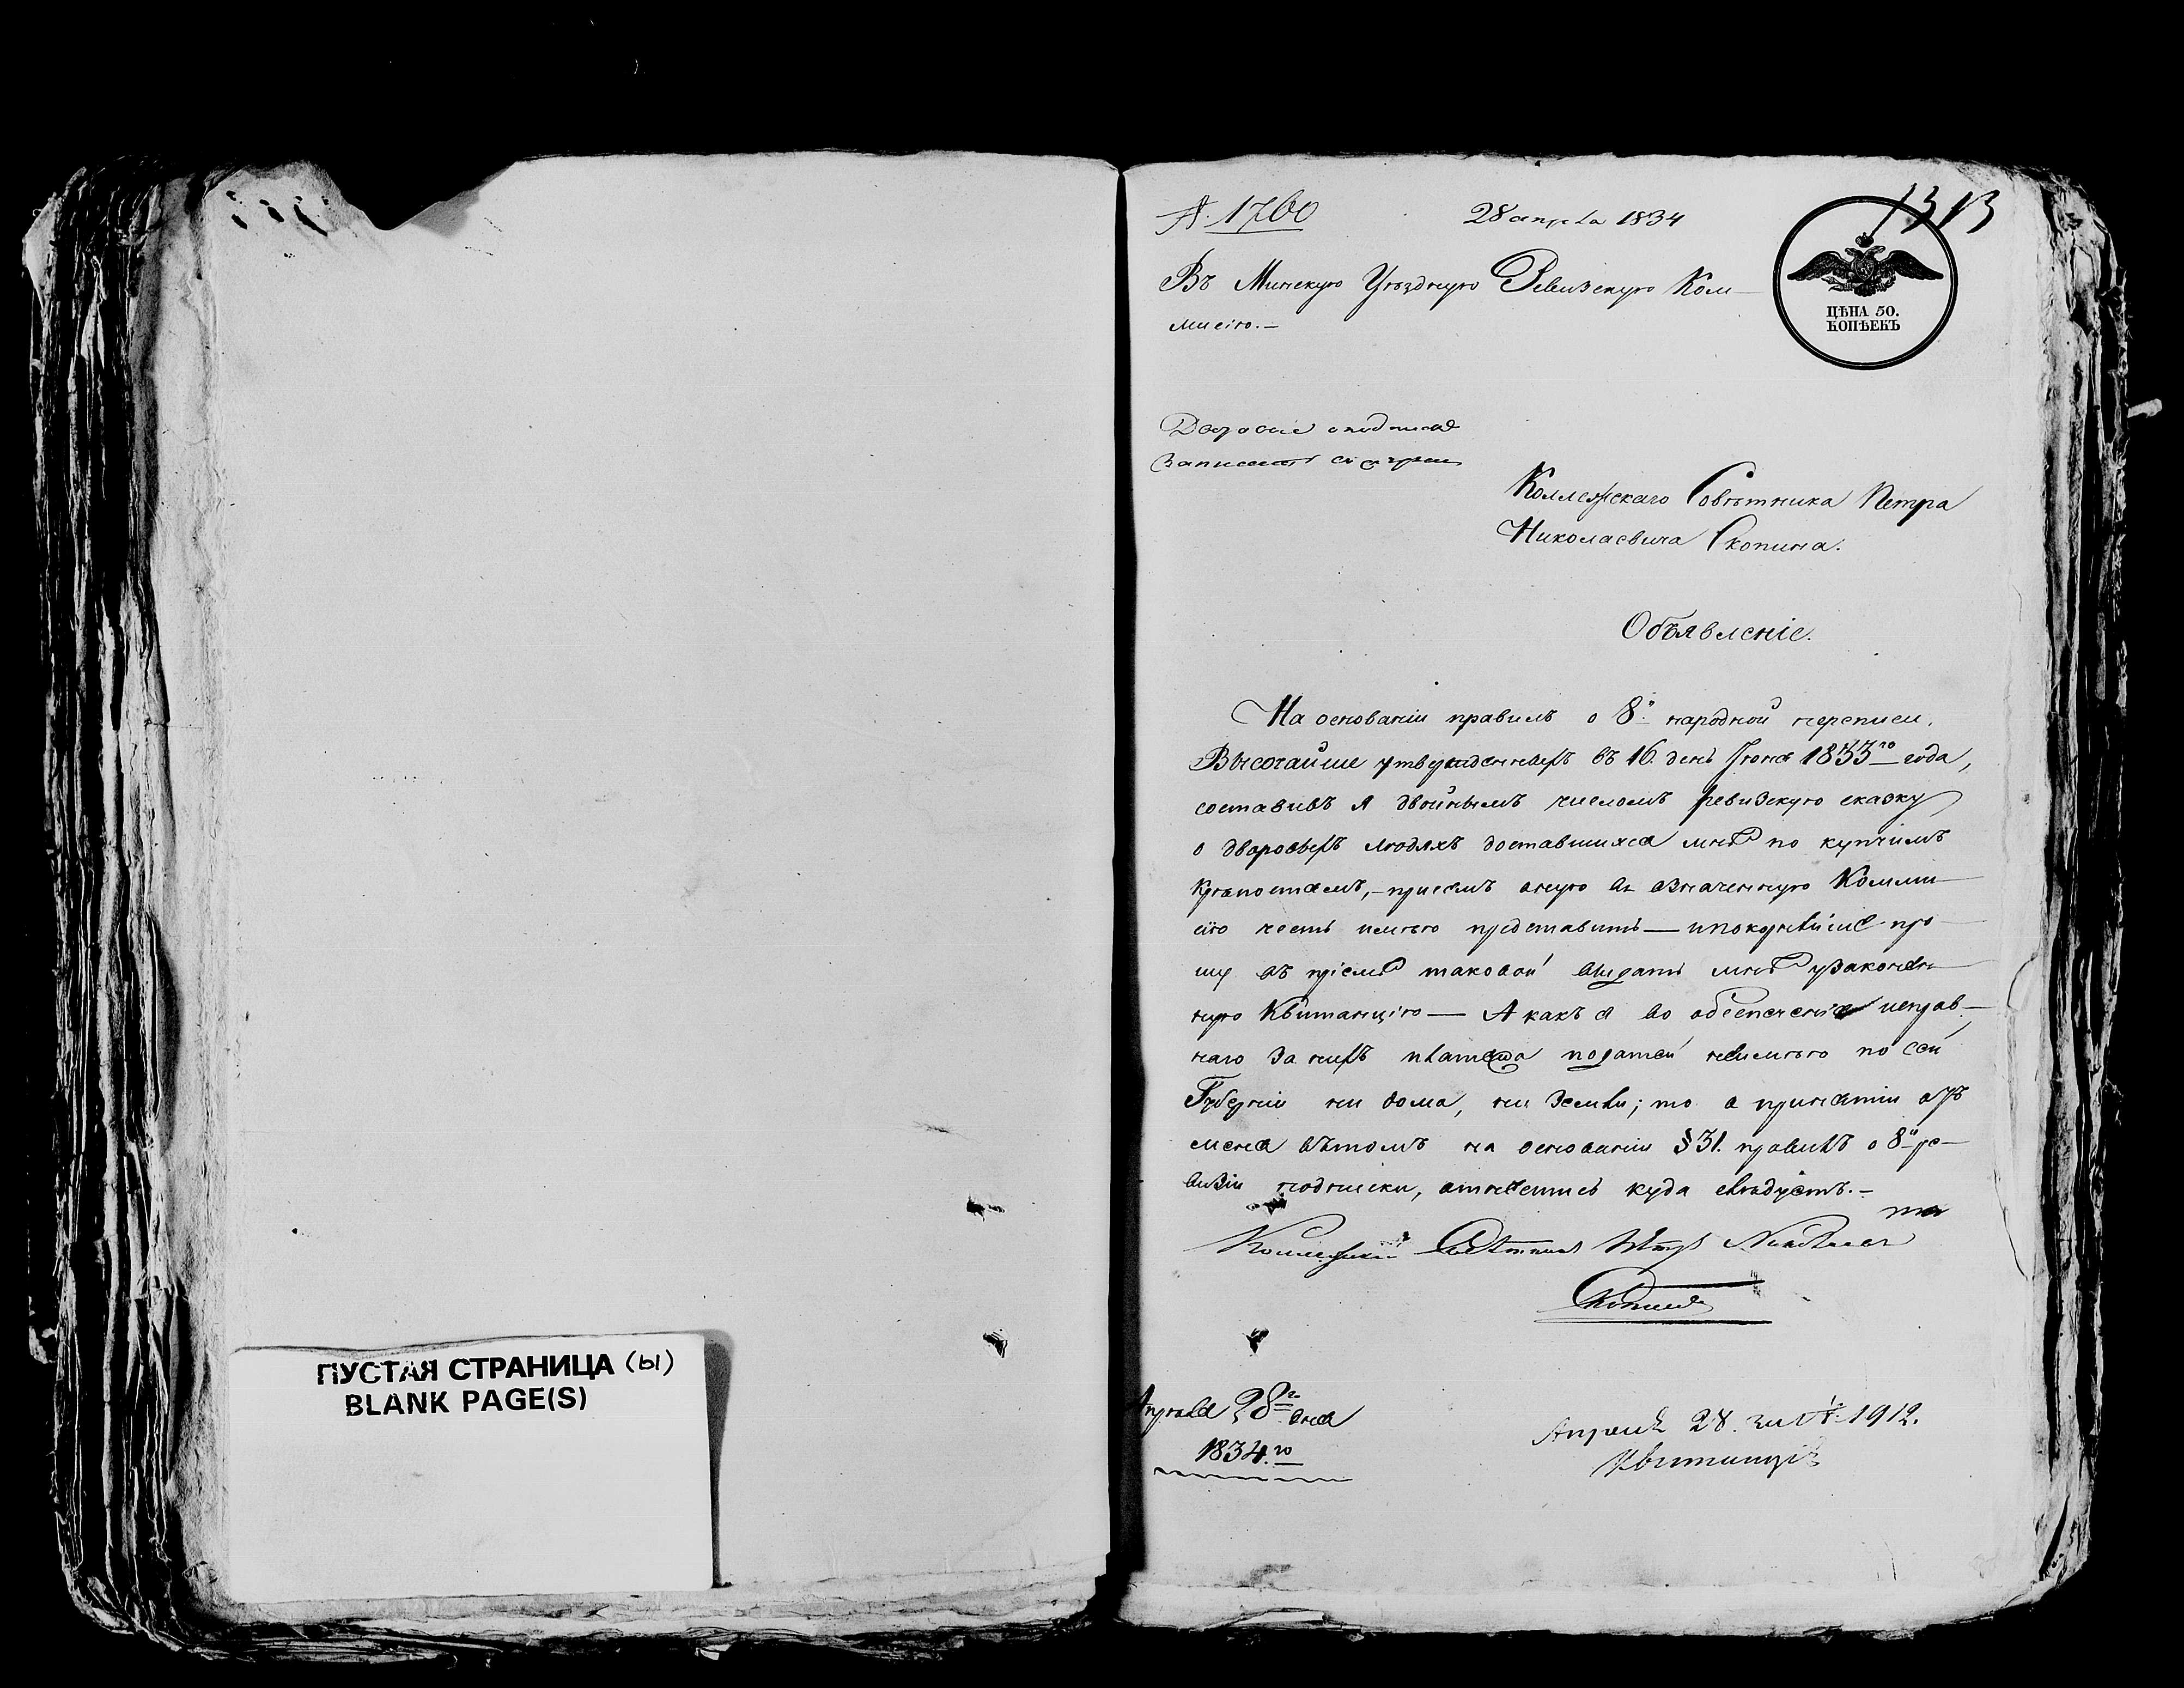 ПУСТАЯ СТРАНИЦА (ы)
BLANK PAGE(S)
1760
28 апреля 1834
1313
ЦѢНА 50.
КОПѢЕКЪ
Въ Минскую Уѣздную Ревизскую Ком-
мисію.-
Коллежскаго Совѣтника Петра
Николаевича Скопина.
Объявленіе.
На основаніи правилъ о 8й народной переписи,
Высочайше утвержденныхъ въ 16. день Іюня 1833го года,
составивъ я двойнымъ числомъ ревизскую сказку
о дворовыхъ людяхъ доставшихся мнѣ по купчимъ
крѣпостямъ, - при семъ оную въ означенную Комми-
сію честь имѣю представить — и покорнѣйше про-
шу въ пріемѣ таковой выдать мнѣ узаконен-
ную Квитанцію — А какъ я во обеспеченіе исправ-
наго за нихъ платежа податей неимѣю по сей
Губерніи ни дома, ни земли; то о принятіи отъ
меня вътомъ на основаніи §31. правилъ о 8й ре-
визіи подписки, отнестись куда слѣдуетъ.-
Коллежскій Совѣтникъ Петръ Николаевъ
Скопинъ
Апрѣля 28го дня
1834.го
Апреля 28. за № 1912.
Квитанція